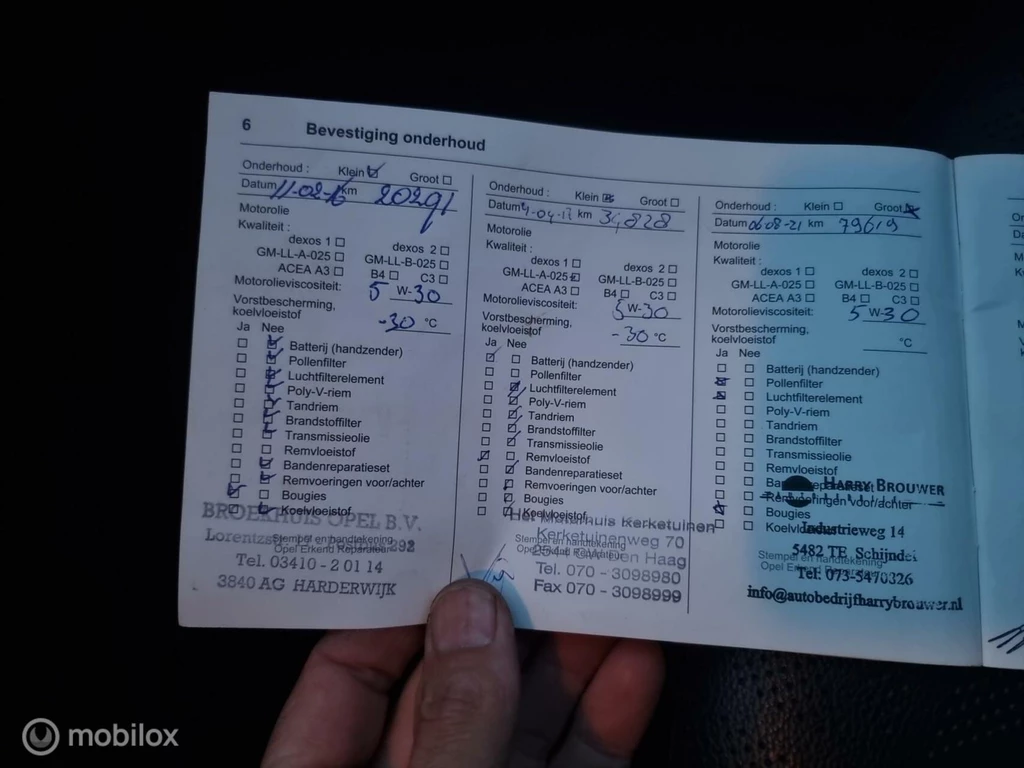 6 Bevestiging onderhoud
Onderhoud : Klein Groot
Datum 11-02-16 km 20291
Motorolie
Kwaliteit :
dexos 1 dexos 2
GM-LL-A-025 GM-LL-B-025
ACEA A3 B4 C3
Motorolieviscositeit: 5 W-30
Vorstbescherming,
koelvloeistof -30 °C
Ja Nee
Batterij (handzender)
Pollenfilter
Luchtfilterelement
Poly-V-riem
Tandriem
Brandstoffilter
Transmissieolie
Remvloeistof
Bandenreparatieset
Remvoeringen voor/achter
Bougies
Koelvloeistof
BROEKHUIS OPEL B.V.
Stempel en handtekening
Opel Erkend Reparateur
Tel. 03410 - 2 01 14
3840 AG HARDERWIJK
Onderhoud : Klein Groot
Datum km
Motorolie
Kwaliteit :
dexos 1 dexos 2
GM-LL-A-025 GM-LL-B-025
ACEA A3 B4 C3
Motorolieviscositeit:
5 W-30
Vorstbescherming,
koelvloeistof -30 °C
Ja Nee
Batterij (handzender)
Pollenfilter
Luchtfilterelement
Poly-V-riem
Tandriem
Brandstoffilter
Transmissieolie
Remvloeistof
Bandenreparatieset
Remvoeringen voor/achter
Bougies
Koelvloeistof
Kerketuinen
Kerketuinenweg 70
Stempel en handtekening
Den Haag
Opel Erkend Reparateur
Tel. 070 - 3098980
Fax 070 - 3098999
Onderhoud : Klein Groot
Datum 06-08-21 km 79619
Motorolie
Kwaliteit :
dexos 1 dexos 2
GM-LL-A-025 GM-LL-B-025
ACEA A3 B4 C3
Motorolieviscositeit: 5 W-30
Vorstbescherming,
koelvloeistof °C
Ja Nee
Batterij (handzender)
Pollenfilter
Luchtfilterelement
Poly-V-riem
Tandriem
Brandstoffilter
Transmissieolie
Remvloeistof
Bandenreparatieset
HARRY BROUWER
Remvoeringen voor/achter
Bougies
Koelvloeistof
Industrieweg 14
5482 TE Schijndel
Stempel en handtekening
Opel Erkend Reparateur
Tel: 073-5470326
info@autobedrijfharrybrouwer.nl
mobilox